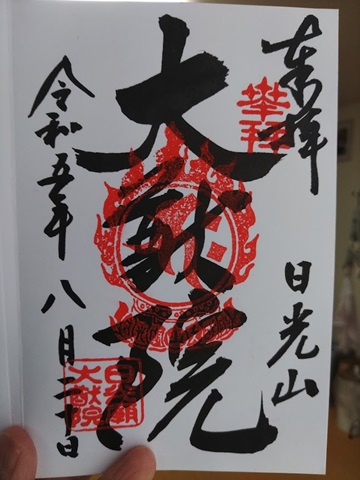 奉拝
日光山
大猷院
令和五年八月二十日
日光廟
大猷院